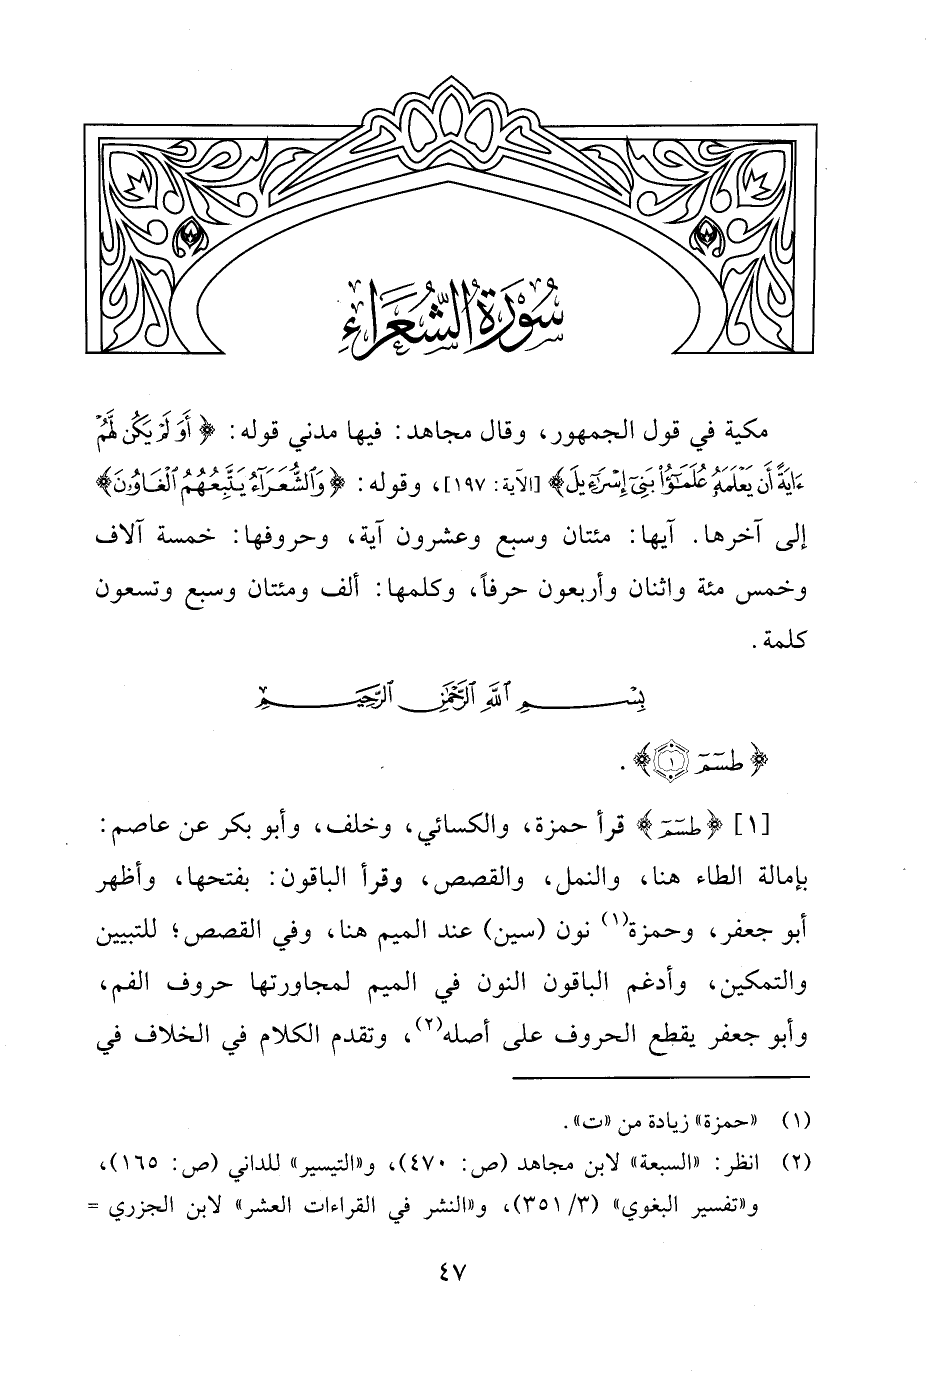 سُورَةُ الشُّعَرَاءِ
مكية في قول الجمهور، وقال مجاهد: فيها مدني قوله: ﴿أَوَلَمْ يَكُن لَّهُمْ
ءَايَةً أَن يَعْلَمَهُۥ عُلَمَٰٓؤُا۟ بَنِىٓ إِسْرَٰٓءِيلَ﴾ [الآية: ١٩٧]، وقوله: ﴿وَٱلشُّعَرَآءُ يَتَّبِعُهُمُ ٱلْغَاوُۥنَ﴾
إلى آخرها. آيها: مئتان وسبع وعشرون آية، وحروفها: خمسة آلاف
وخمس مئة واثنان وأربعون حرفاً، وكلمها: ألف ومئتان وسبع وتسعون
كلمة.
بِسْمِ ٱللَّهِ ٱلرَّحْمَٰنِ ٱلرَّحِيمِ
﴿طسٓمٓ ١﴾.
[١] ﴿طسٓمٓ﴾ قرأ حمزة، والكسائي، وخلف، وأبو بكر عن عاصم:
بإمالة الطاء هنا، والنمل، والقصص، وقرأ الباقون: بفتحها، وأظهر
أبو جعفر، وحمزة(١) نون (سين) عند الميم هنا، وفي القصص؛ للتبيين
والتمكين، وأدغم الباقون النون في الميم لمجاورتها حروف الفم،
وأبو جعفر يقطع الحروف على أصله(٢)، وتقدم الكلام في الخلاف في
(١) «حمزة» زيادة من «ت».
(٢) انظر: «السبعة» لابن مجاهد (ص: ٤٧٠)، و«التيسير» للداني (ص: ١٦٥)،
و«تفسير البغوي» (٣/ ٣٥١)، و«النشر في القراءات العشر» لابن الجزري =
٤٧